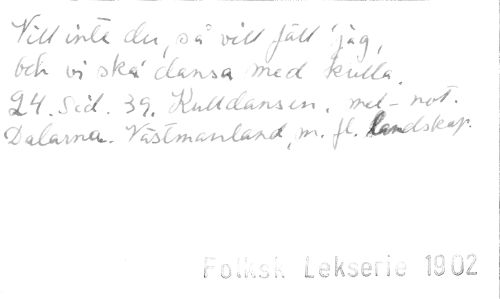 Vill inte du, så vill fäll jag,
och vi ska dansa med kulla.
24. Sid. 39. Kulldansen. mel-not.
Dalarna. Västmanland, m. fl. landskap.
Folksk Lekserie 1902